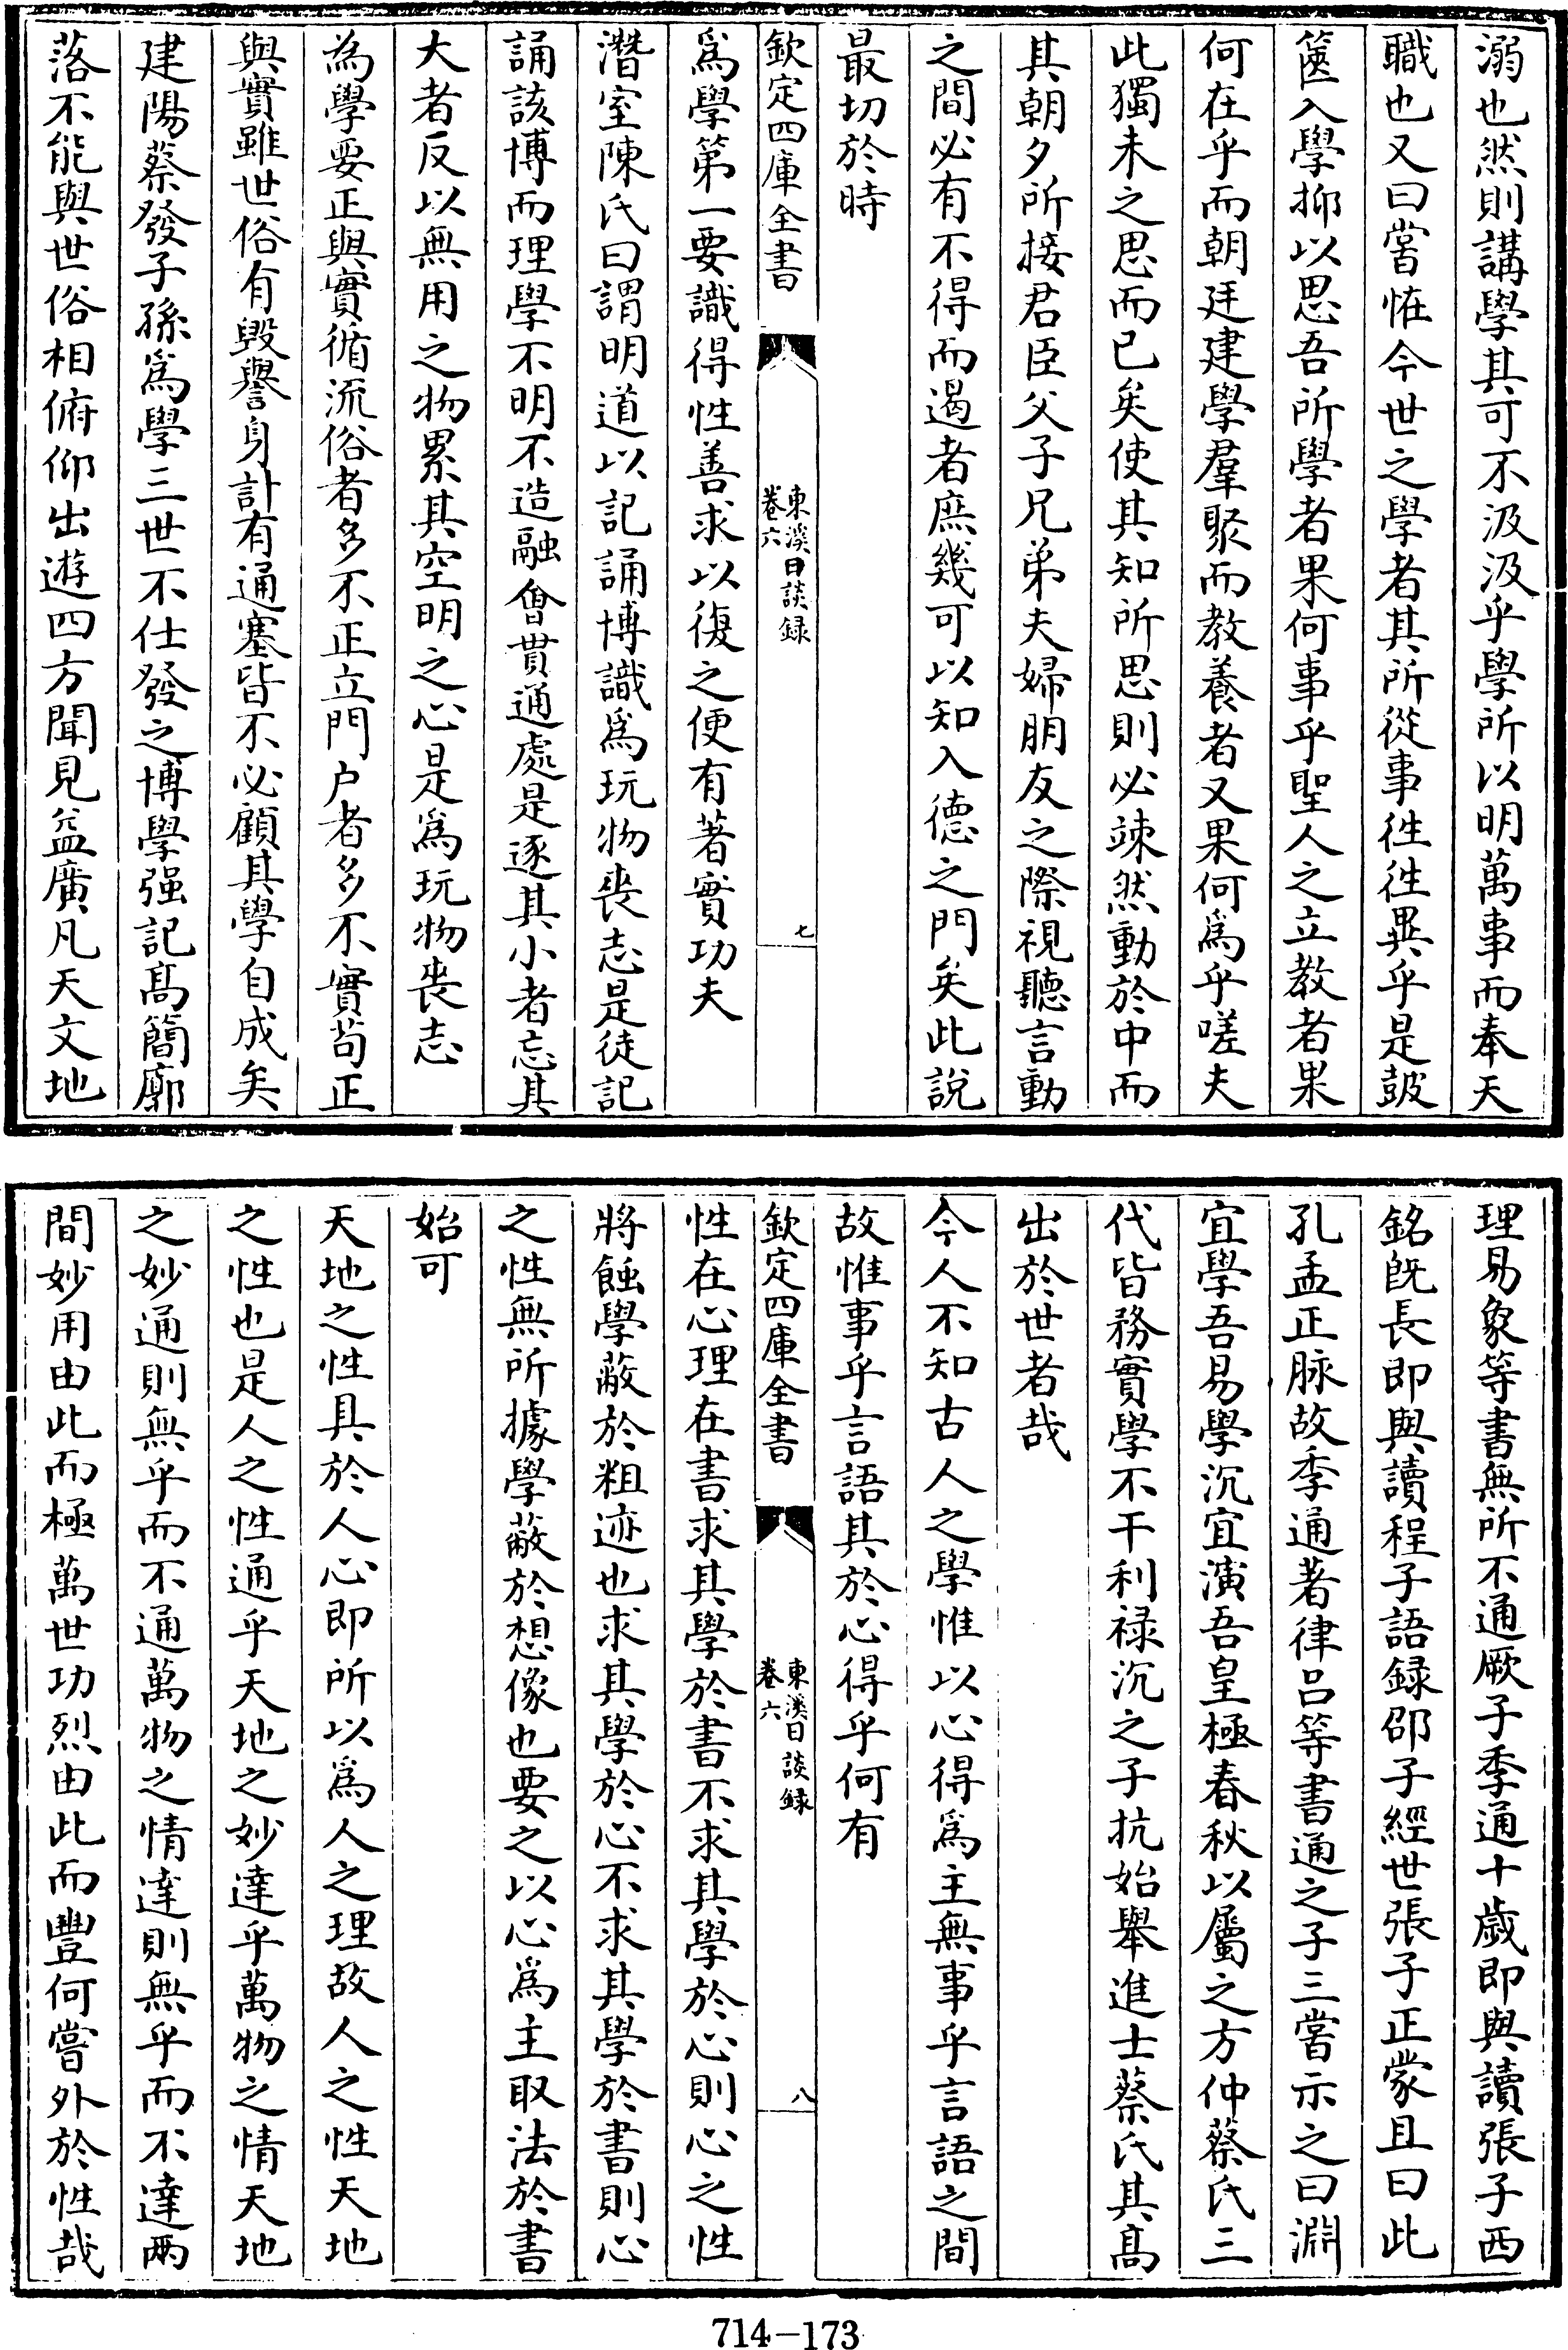 溺也然則講學其可不汲汲乎學所以明萬事而奉天
職也又曰嘗怪今世之學者其所從事徃徃異乎是鼓
篋入學抑以思吾所學者果何事乎聖人之立教者果
何在乎而朝廷建學羣聚而教養者又果何爲乎嗟夫
此獨未之思而已矣使其知所思則必竦然動於中而
其朝夕所接君臣父子兄弟夫婦朋友之際視聽言動
之間必有不得而遏者庶幾可以知入德之門矣此說
最切於時
欽定四庫全書
東溪日談録
卷六
七
爲學第一要識得性善求以復之便有著實功夫
潛室陳氏曰謂明道以記誦博識爲玩物喪志是徒記
誦該博而理學不明不造融會貫通處是逐其小者忘其
大者反以無用之物累其空明之心是爲玩物喪志
為學要正與實循流俗者多不正立門户者多不實苟正
與實雖世俗有毁譽身計有通塞皆不必顧其學自成矣
建陽蔡發子孫爲學三世不仕發之博學强記髙簡廓
落不能與世俗相俯仰出遊四方聞見益廣凡天文地
理易象等書無所不通厥子季通十歲即與讀張子西
銘旣長即與讀程子語録邵子經世張子正蒙且曰此
孔孟正脉故季通著律吕等書通之子三嘗示之曰淵
宜學吾易學沉宜演吾皇極春秋以屬之方仲蔡氏三
代皆務實學不干利禄沉之子抗始舉進士蔡氏其髙
出於世者哉
今人不知古人之學惟以心得爲主無事乎言語之間
故惟事乎言語其於心得乎何有
欽定四庫全書
東溪日談録
卷六
八
性在心理在書求其學於書不求其學於心則心之性
將蝕學蔽於粗迹也求其學於心不求其學於書則心
之性無所據學蔽於想像也要之以心爲主取法於書
始可
天地之性具於人心即所以爲人之理故人之性天地
之性也是人之性通乎天地之妙達乎萬物之情天地
之妙通則無乎而不通萬物之情達則無乎而不達兩
間妙用由此而極萬世功烈由此而豐何嘗外於性哉
714-173